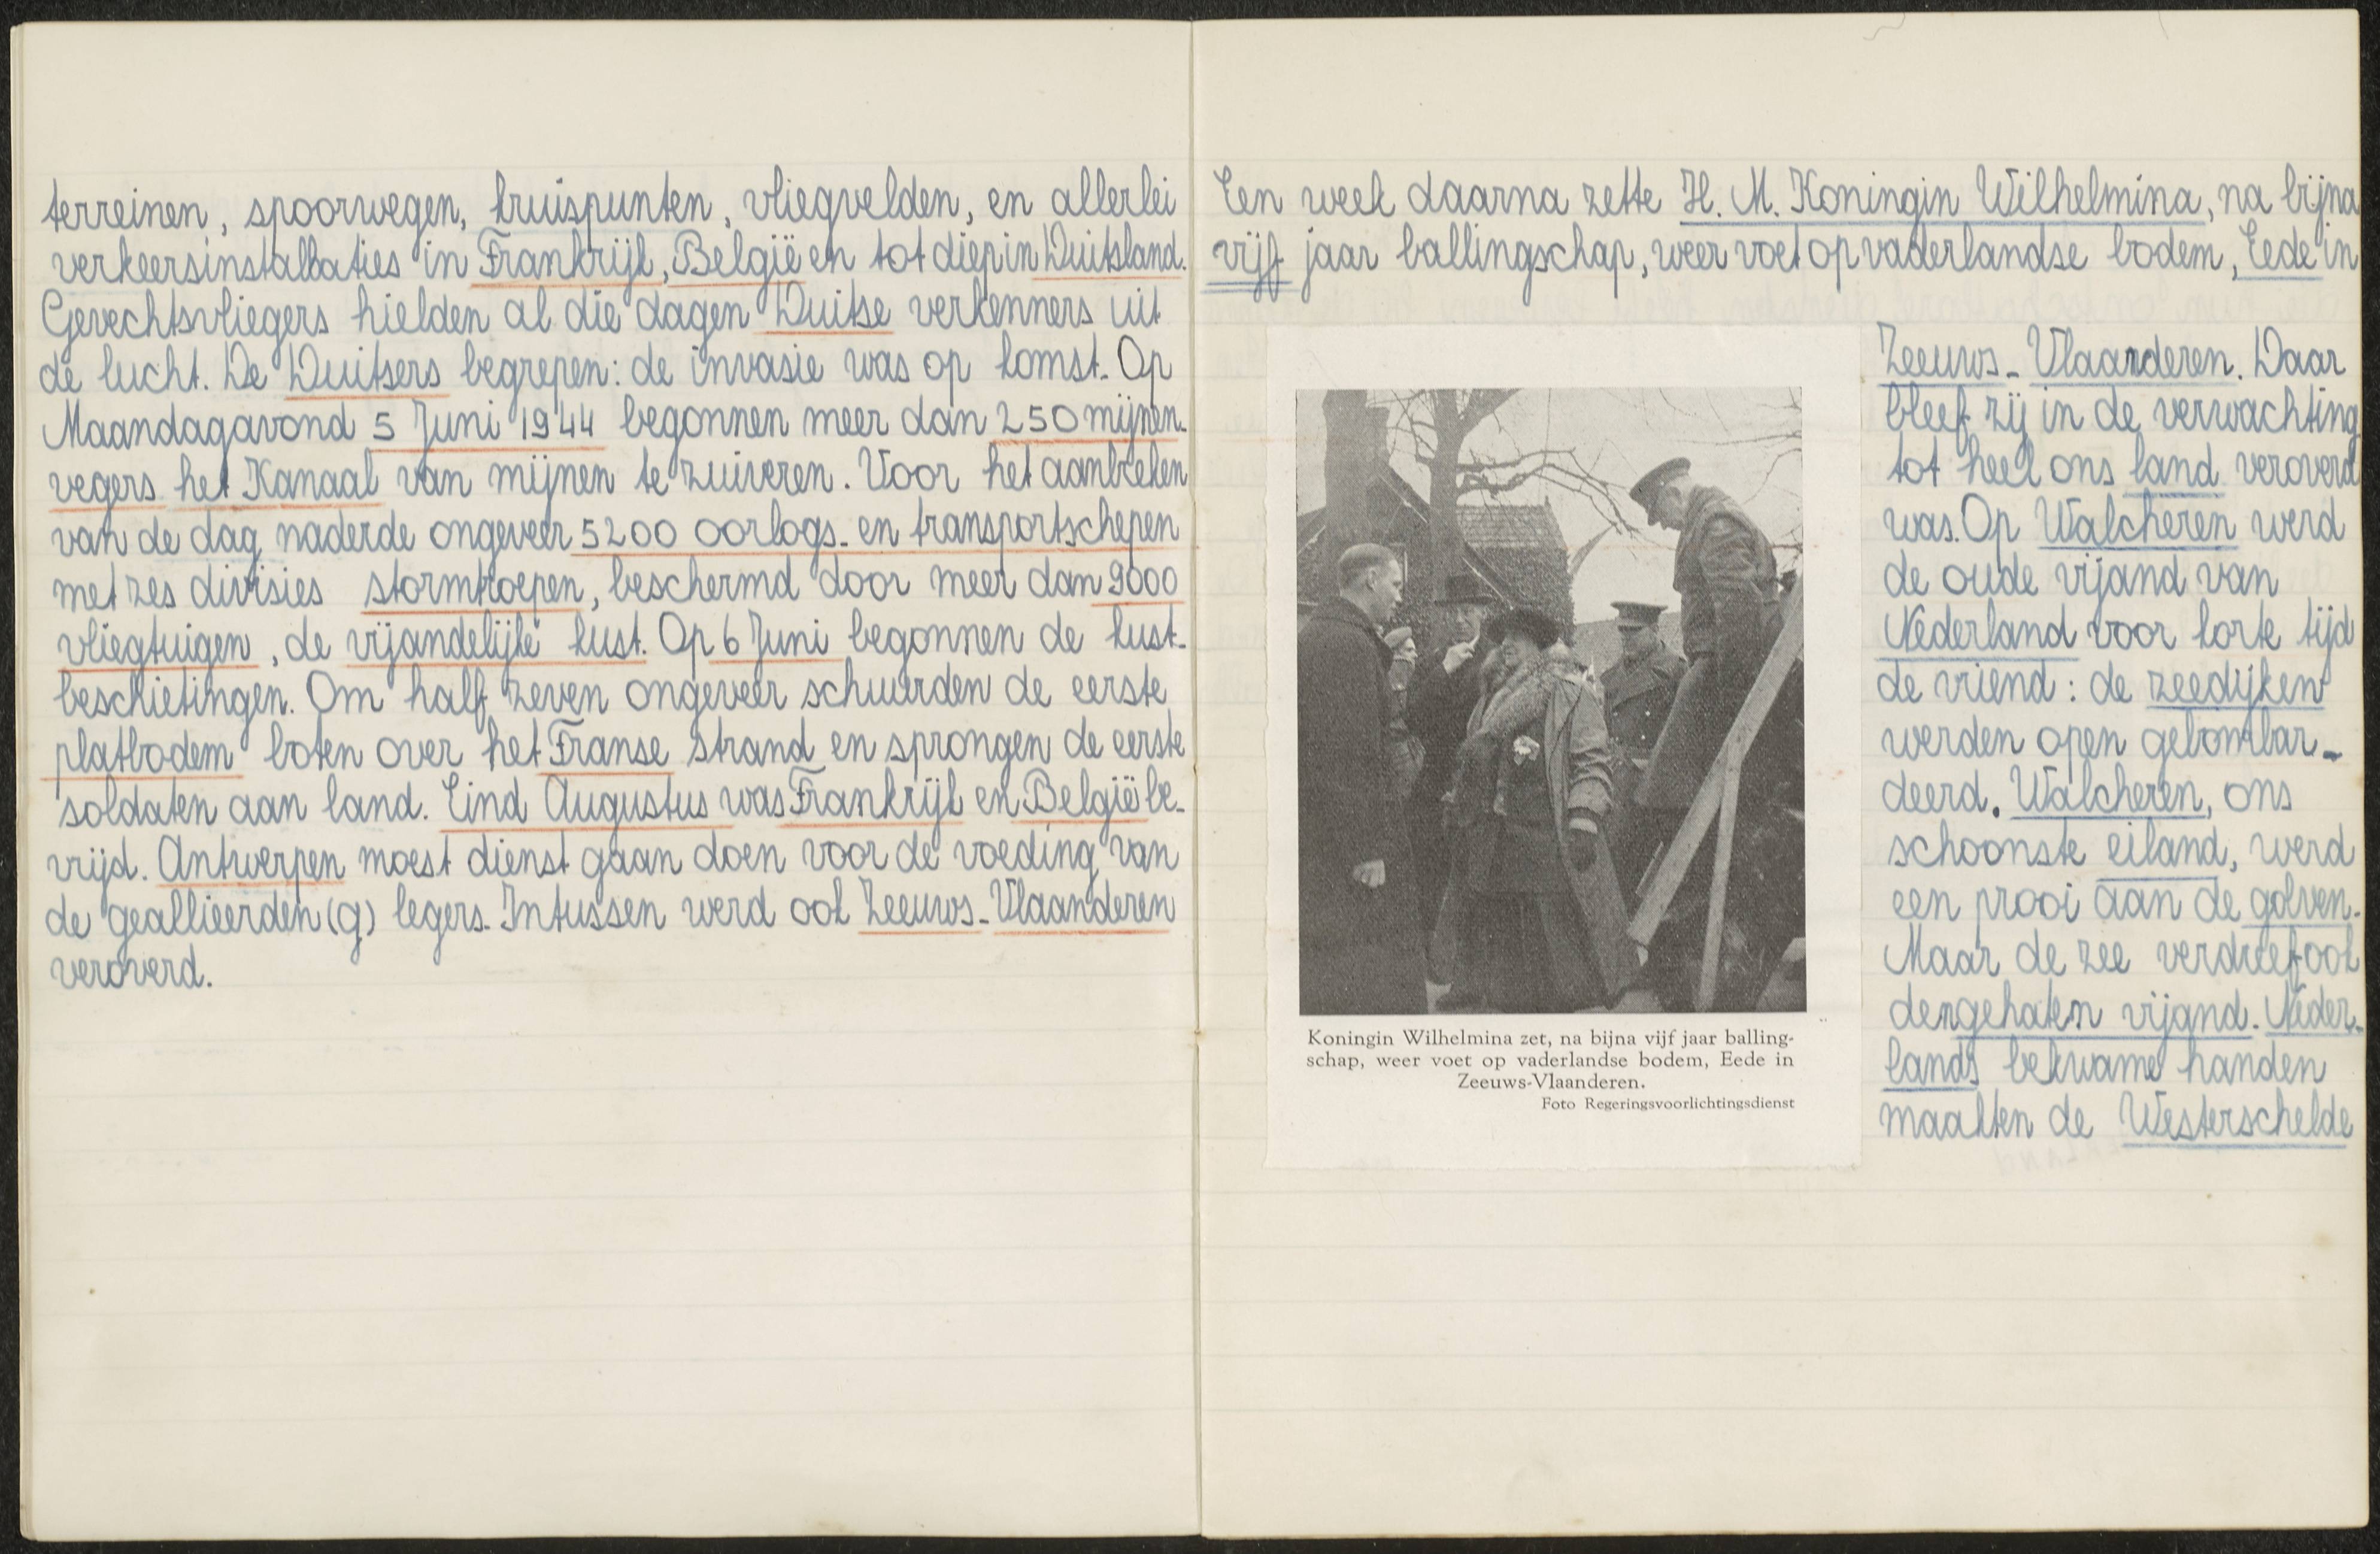 terreinen, spoorwegen, kruispunten, vliegvelden, en allerlei
verkeersinstallaties in Frankrijk, België en tot diep in Duitsland.
Gevechtsvliegers hielden al die dagen Duitse verkenners uit
de lucht. De Duitsers begrepen: de invasie was op komst. Op
Maandagavond 5 Juni 1944 begonnen meer dan 250 mijnen-
vegers het Kanaal van mijnen te zuiveren. Voor het aanbreken
van de dag naderde ongeveer 5200 oorlogs- en transportschepen
met zes divisies stormtroepen, beschermd door meer dan 9000
vliegtuigen, de vijandelijke kust. Op 6 Juni begonnen de kust-
beschietingen. Om half zeven ongeveer schuurden de eerste
platbodem boten over het Franse strand en sprongen de eerste
soldaten aan land. Eind Augustus was Frankrijk en België be-
vrijd. Antwerpen moest dienst gaan doen voor de voeding van
de geallieerden (g) legers. Intussen werd ook Zeeuws-Vlaanderen
veroverd.
Een week daarna zette H. M. Koningin Wilhelmina, na bijna
vijf jaar ballingschap, weer voet op vaderlandse bodem, Eede in
Zeeuws-Vlaanderen. Daar
bleef zij in de verwachting
tot heel ons land veroverd
was. Op Walcheren werd
de oude vijand van
Nederland voor korte tijd
de vriend: de zeedijken
werden open gebombar-
deerd. Walcheren, ons
schoonste eiland, werd
een prooi aan de golven.
Maar de zee verdreef ook
de gehaten vijand. Neder-
lands bekwame handen
maakten de Westerschelde
Koningin Wilhelmina zet, na bijna vijf jaar balling-
schap, weer voet op vaderlandse bodem, Eede in
Zeeuws-Vlaanderen.
Foto Regeringsvoorlichtingsdienst